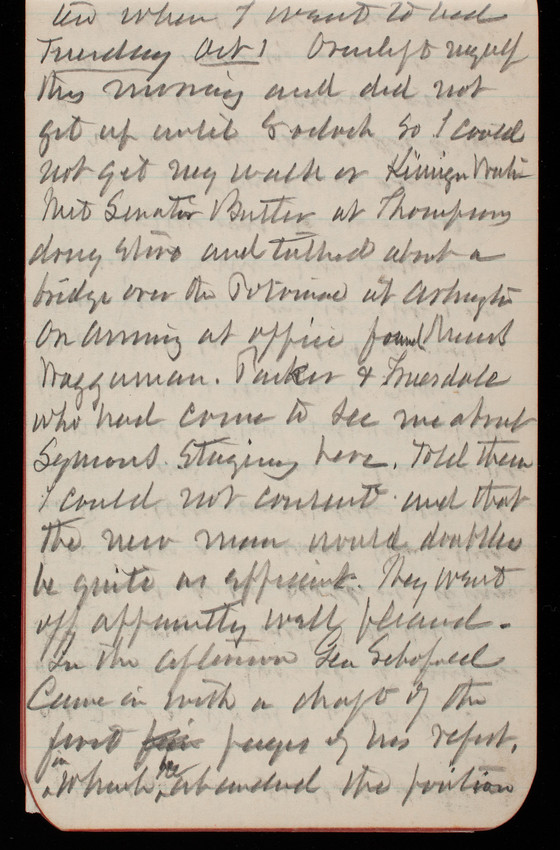 ten when I went to bed
Tuesday Oct 1 Overslept myself
this morning and did not
get up until 8 oclock so I could
not get my walk or
Met Senator Butler at Thompsons
drug store and talked about a
bridge over the Potomac at Arlington
On arriving at office found Messrs
Waggaman. Parker & Truesdale
who had come to see me about
Symons staying here. Told them
I could not consent and that
the new man would doubtless
be quite as efficient. They went
off apparently well pleased.
In the afternoon Gen Schofield
Came in with a draft of the
first pages of his report,
in which he abandoned the position